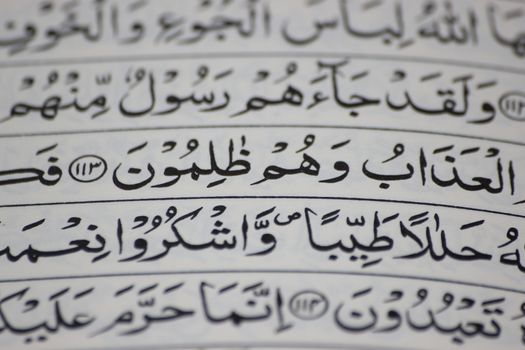 ٱللَّهُ لِبَاسَ ٱلْجُوعِ وَٱلْخَوْفِ
١١٢ وَلَقَدْ جَآءَهُمْ رَسُولٌ مِّنْهُمْ
ٱلْعَذَابُ وَهُمْ ظَٰلِمُونَ ١١٣
حَلَٰلًا طَيِّبًا ۖ وَٱشْكُرُوا۟
تَعْبُدُونَ ١١٤ إِنَّمَا حَرَّمَ